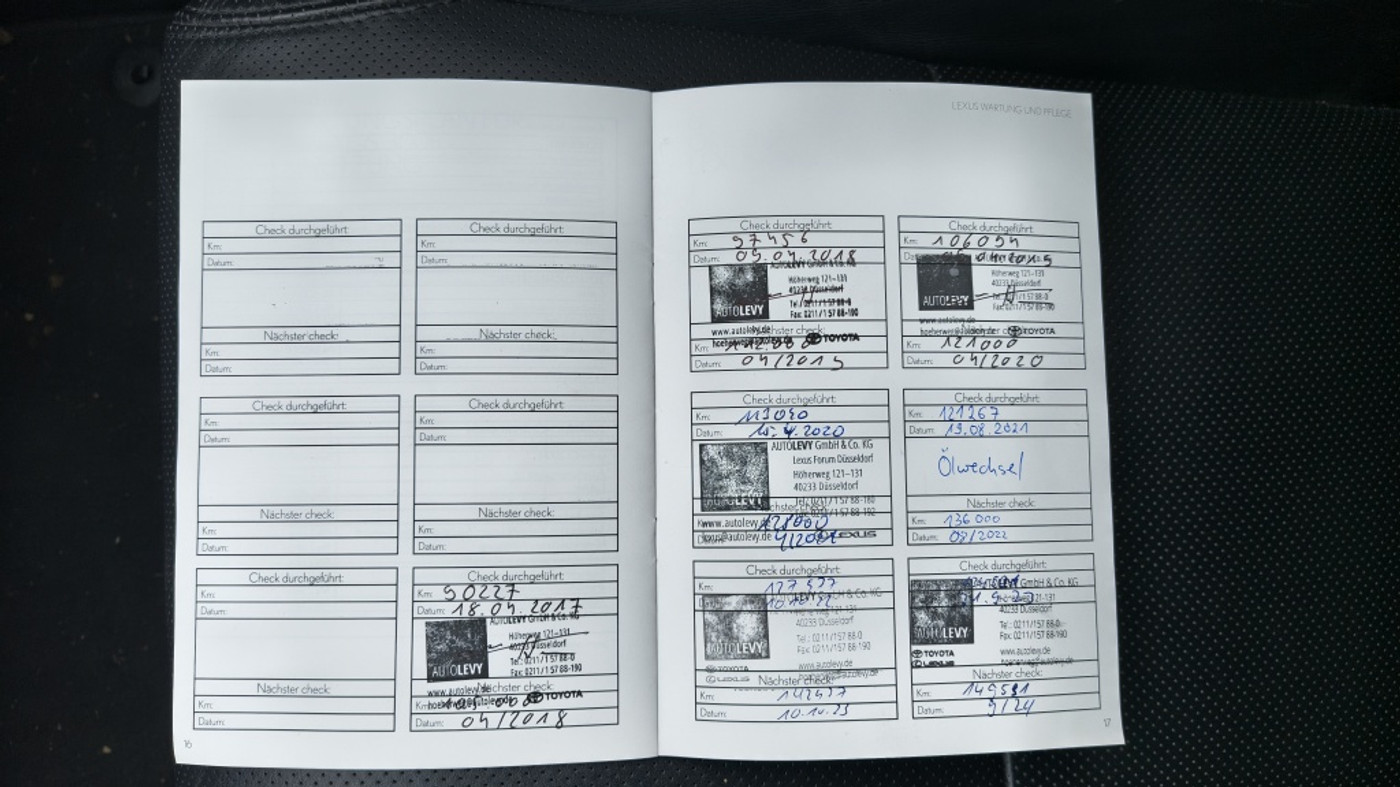 LEXUS WARTUNG UND PFLEGE
Check durchgeführt:
Km:
Datum:
Nächster check:
Km:
Datum:
Check durchgeführt:
Km:
Datum:
Nächster check:
Km:
Datum:
Check durchgeführt:
Km:
Datum:
Nächster check:
Km:
Datum:
Check durchgeführt:
Km:
Datum:
Nächster check:
Km:
Datum:
Check durchgeführt:
Km:
Datum:
Nächster check:
Km:
Datum:
Check durchgeführt:
90227
Datum: 18.04.2017
AUTOLEVY GmbH & Co. KG
Höherweg 121-131
40233 Düsseldorf
AUTOLEVY
Tel.: 0211/1 57 88-0
Fax: 0211/1 57 88-190
www.autolevy.de
Nächster check:
Km:
TOYOTA
Datum: 04/2018
16
Check durchgeführt:
Km: 97456
Datum: 05.04.2018
AUTOLEVY GmbH & Co. KG
Höherweg 121-131
40233 Düsseldorf
AUTOLEVY
Tel.: 0211/1 57 88-0
Fax: 0211/1 57 88-190
www.autolevy.de
Nächster check:
Km:
TOYOTA
Datum: 04/2019
Check durchgeführt:
Km: 106094
Höherweg 121-131
40233 Düsseldorf
AUTOLEVY
Tel.: 0211/1 57 88-0
Fax: 0211/1 57 88-190
www.autolevy.de
TOYOTA
Km: 121000
Datum: 04/2020
Check durchgeführt:
Km: 113020
Datum: 15.4.2020
AUTOLEVY GmbH & Co. KG
Lexus Forum Düsseldorf
Höherweg 121-131
40233 Düsseldorf
AUTOLEVY
Tel.: 0211/1 57 88-180
Fax: 0211/1 57 88-192
www.autolevy.de
128000
lexus@autolevy.de
LEXUS
Check durchgeführt:
Km: 121267
Datum: 19.08.2021
Ölwechsel
Nächster check:
Km: 136 000
Datum: 08/2022
Check durchgeführt:
Km: 127477
Datum: 10.10.22
40233 Düsseldorf
AUTOLEVY
Tel.: 0211/157 88-0
Fax: 0211/157 88-190
TOYOTA
LEXUS
www.autolevy.de
Nächster check:
Km: 142477
Datum: 10.10.23
Check durchgeführt:
GmbH & Co. KG
40233 Düsseldorf
AUTOLEVY
Tel.: 0211/157 88-0
Fax: 0211/157 88-190
TOYOTA
LEXUS
www.autolevy.de
Nächster check:
Km: 149591
Datum: 9/24
17